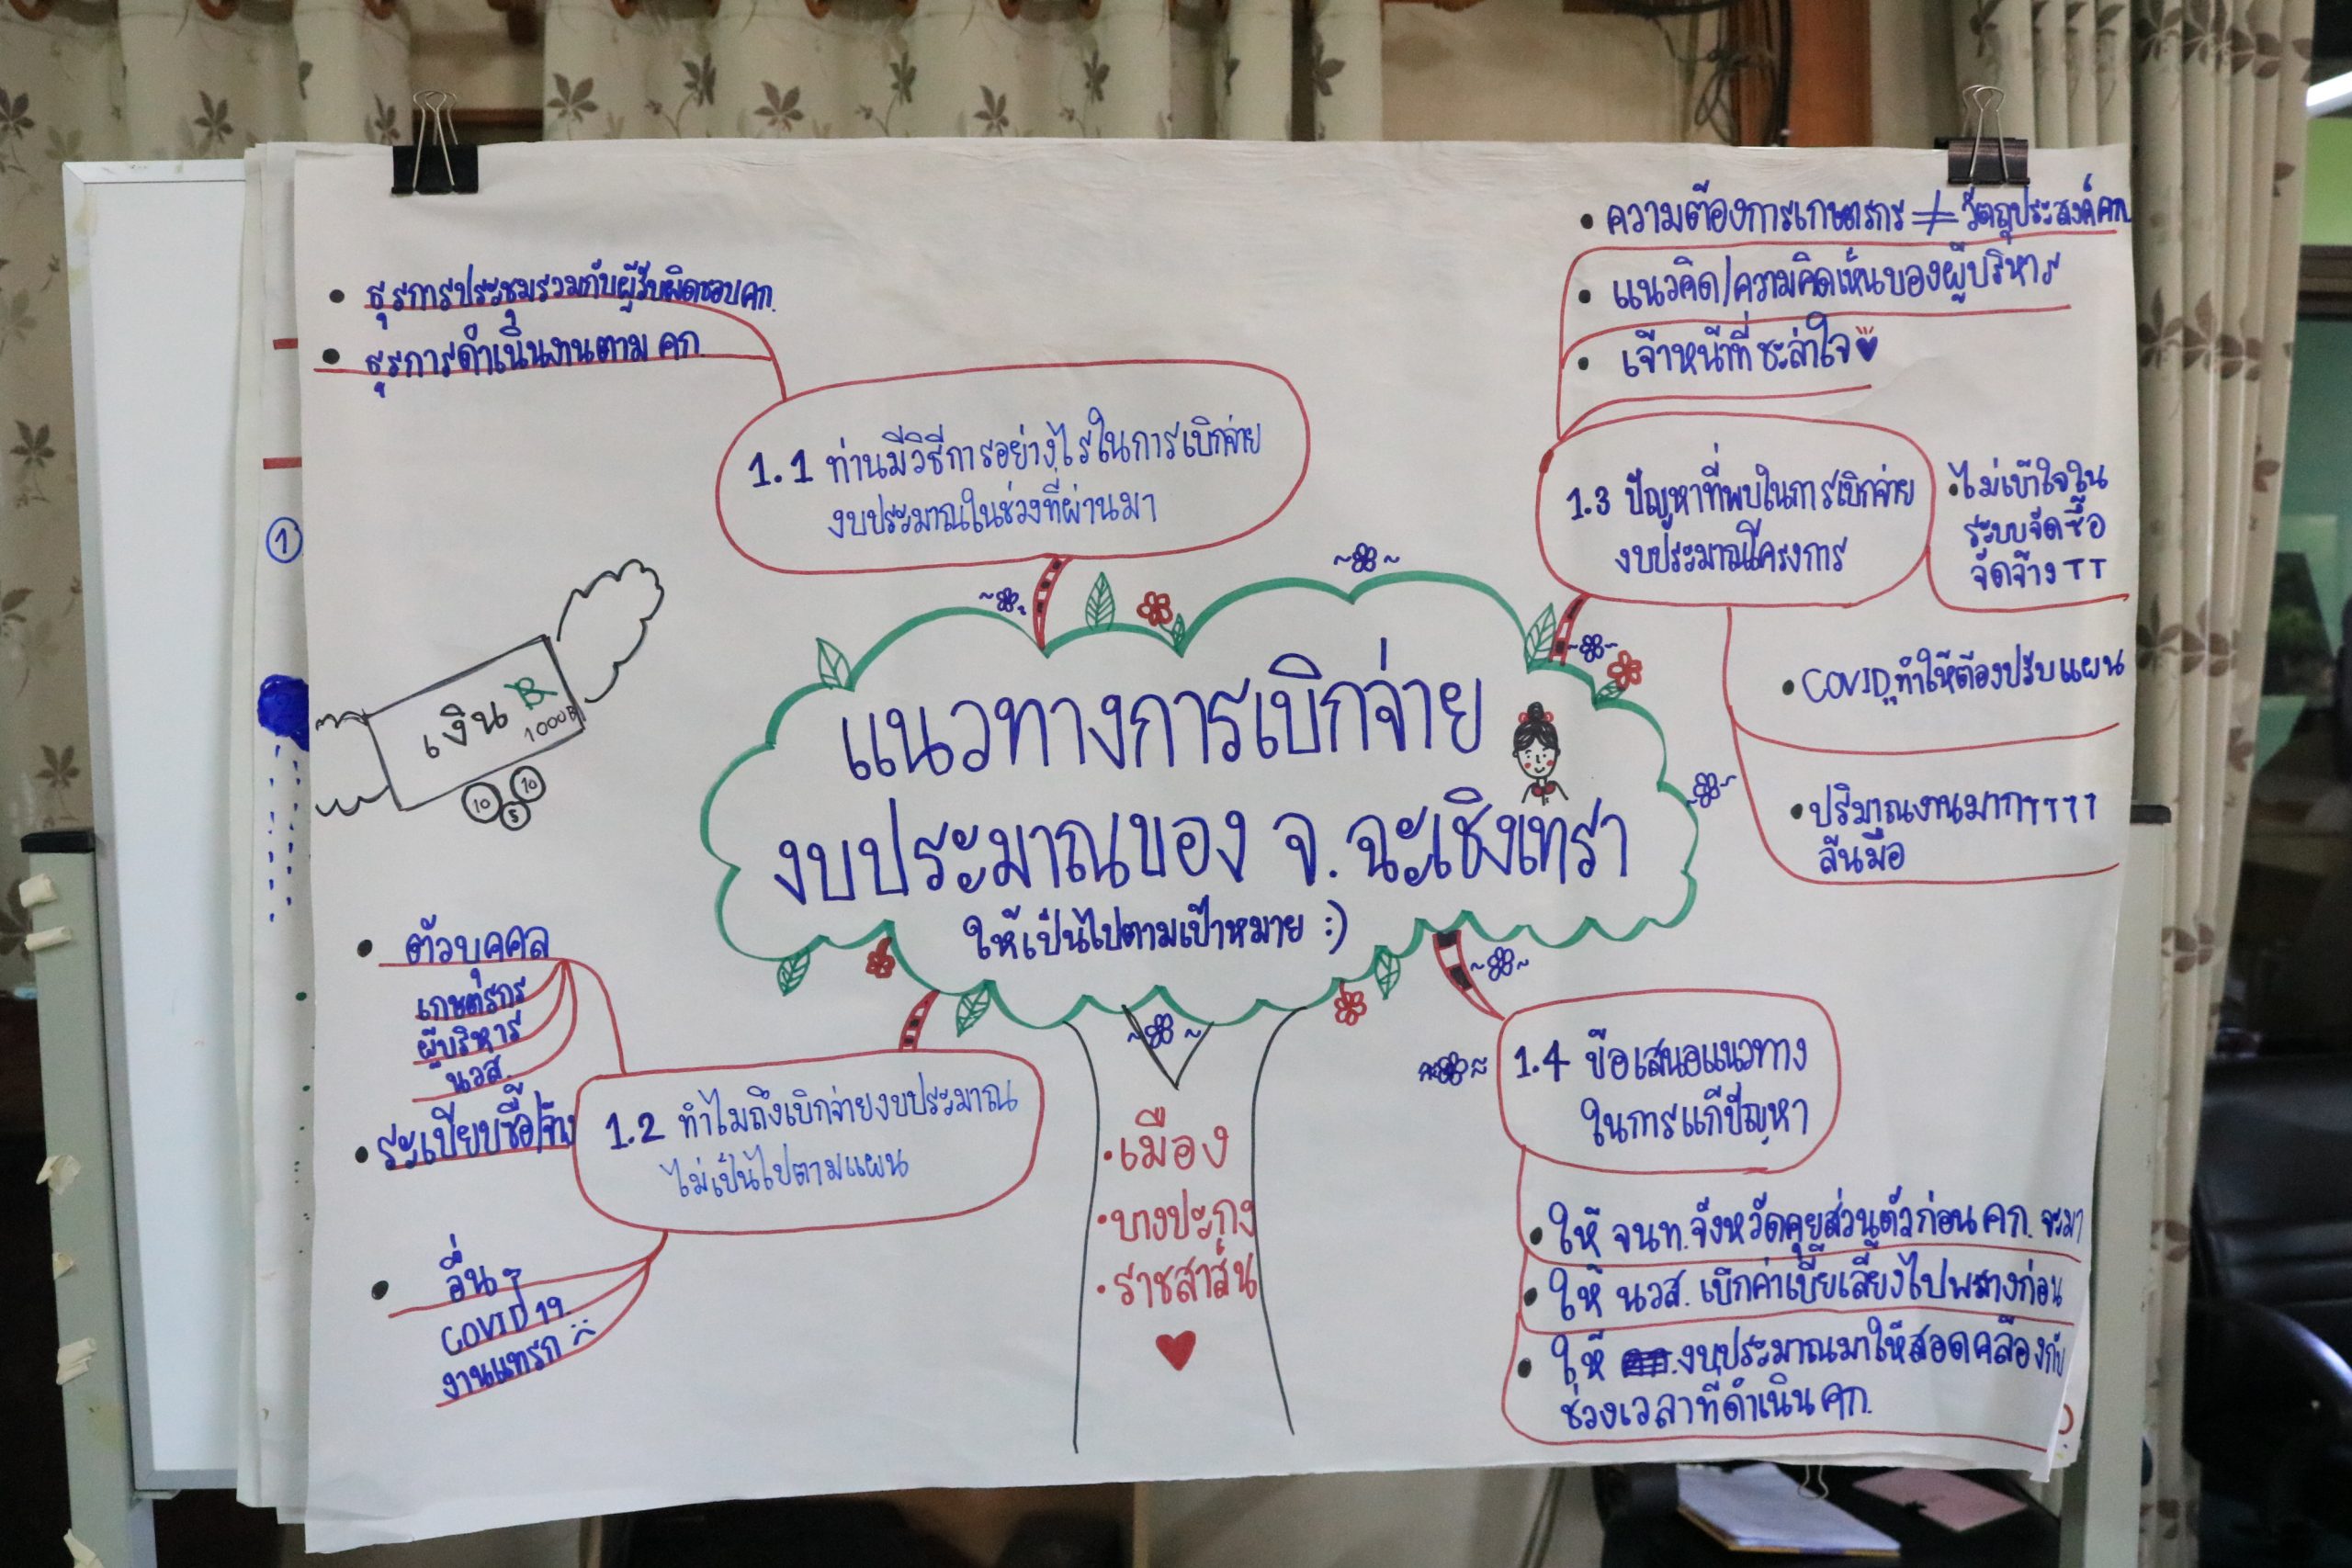 • ธุรการประชุมรวมกับผู้รับผิดชอบคก.
• ธุรการดำเนินงานตาม คก.
1.1 ท่านมีวิธีการอย่างไรในการเบิกจ่าย
งบประมาณในช่วงที่ผ่านมา
• ความต้องการเกษตรกร ≠ วัตถุประสงค์คก.
• แนวคิด/ความคิดเห็นของผู้บริหาร
• เจ้าหน้าที่ชะล่าใจ
1.3 ปัญหาที่พบในการเบิกจ่าย
งบประมาณโครงการ
• ไม่เข้าใจใน
ระบบจัดซื้อ
จัดจ้าง TT
• COVID ทำให้ต้องปรับแผน
• ปริมาณงานมากTTTT
ล้นมือ
1
เงิน ฿
1000฿
10 10
5
แนวทางการเบิกจ่าย
งบประมาณของ จ.ฉะเชิงเทรา
ให้เป็นไปตามเป้าหมาย :)
• ตัวบุคคล
เกษตรกร
ผู้บริหาร
นวส.
• ระเบียบซื้อ/จ้าง
• อื่นๆ
COVID 19
งานแทรก
1.2 ทำไมถึงเบิกจ่ายงบประมาณ
ไม่เป็นไปตามแผน
• เมือง
• บางปะกง
• ราชสาส์น
1.4 ข้อเสนอแนวทาง
ในการแก้ปัญหา
• ให้ จนท.จังหวัดคุยส่วนตัวก่อน คก. จะมา
• ให้ นวส. เบิกค่าเบี้ยเลี้ยงไปพลางก่อน
• ให้ งบประมาณมาให้สอดคล้องกับ
ช่วงเวลาที่ดำเนิน คก.